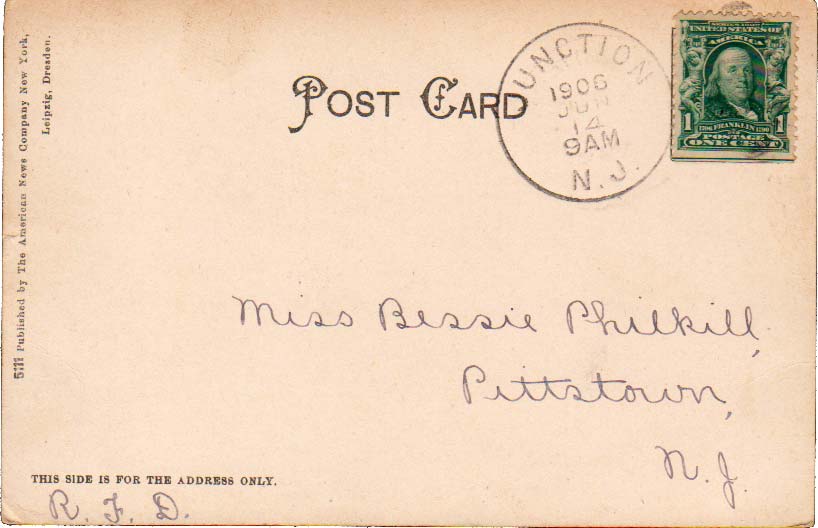 5111 Published by The American News Company New York,
Leipzig, Dresden.
POST CARD
JUNCTION
1906
JUN
14
9AM
N.J.
SERIES 1902
UNITED STATES OF
AMERICA
1 1
1706 FRANKLIN 1790
POSTAGE
ONE CENT
Miss Bessie Philkill,
Pittstown,
N.J.
THIS SIDE IS FOR THE ADDRESS ONLY.
R. F. D.